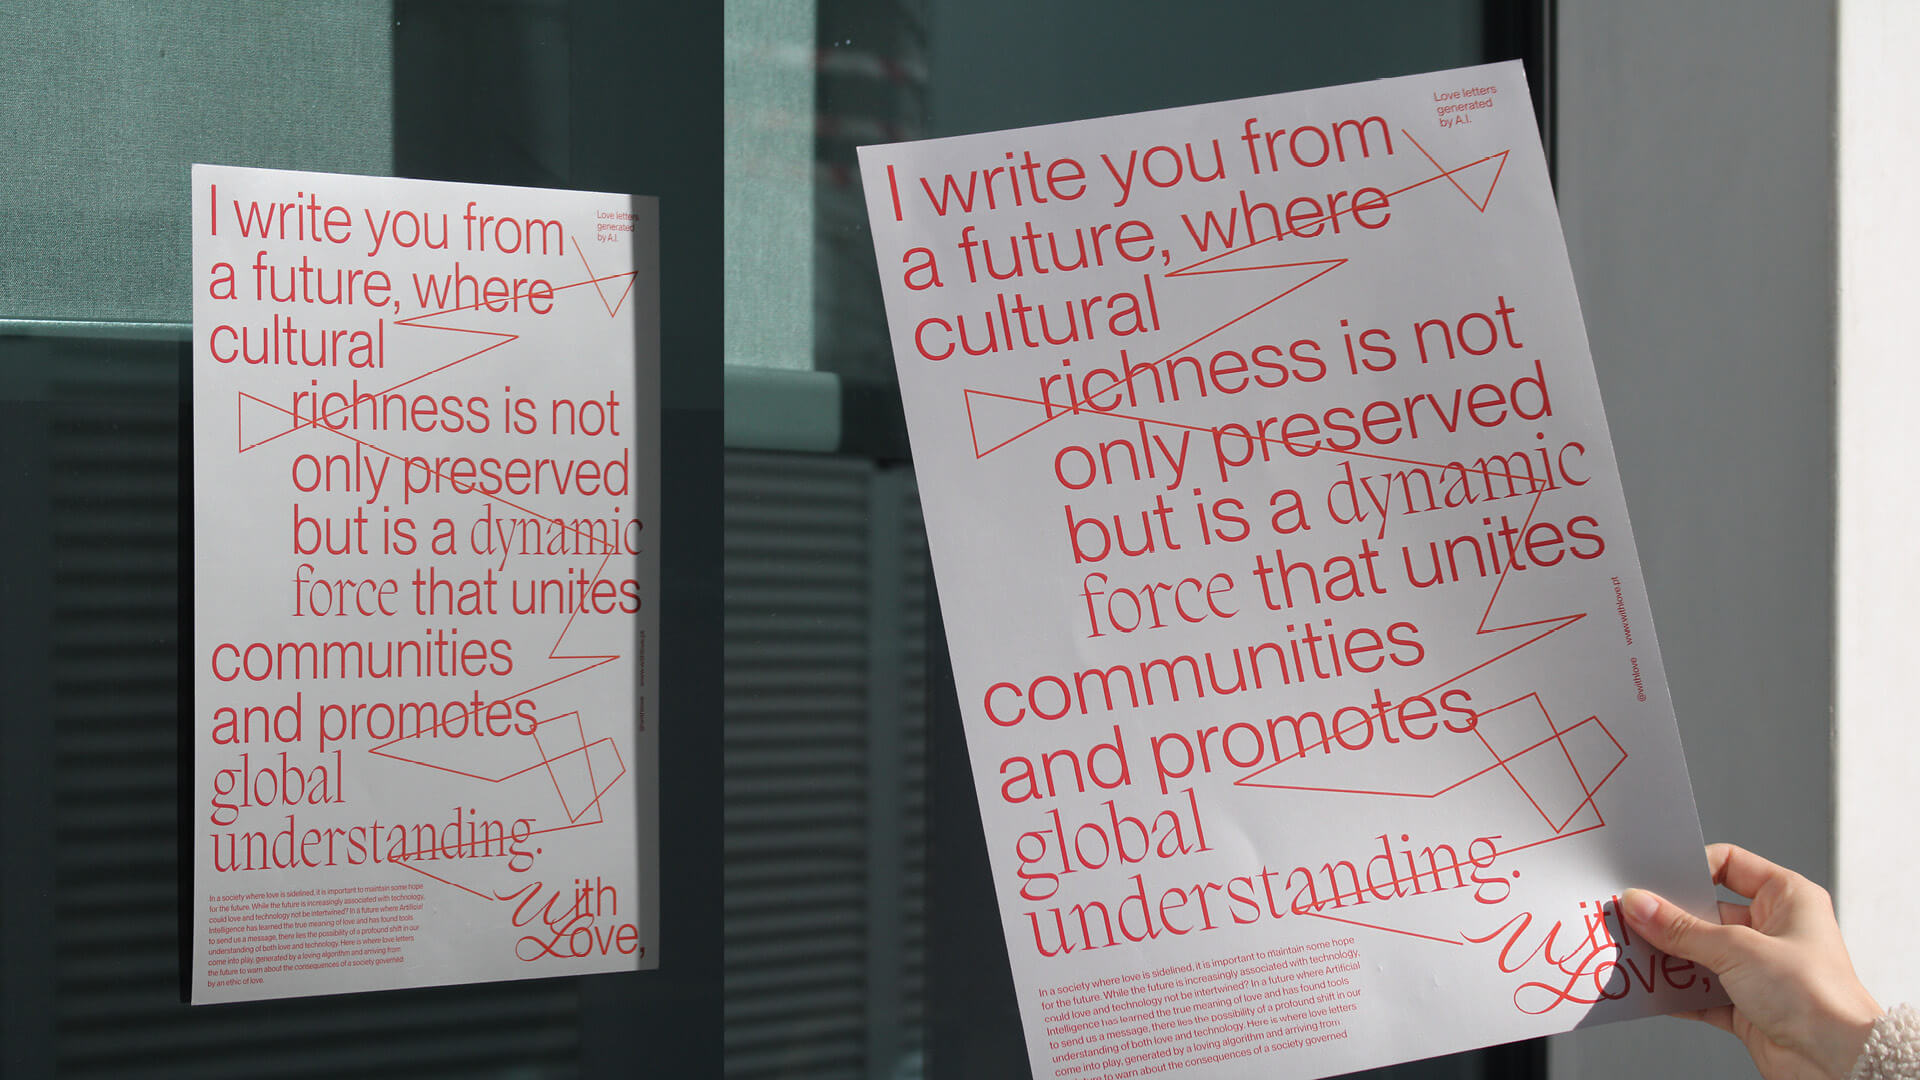 I write you from
a future, where
cultural
richness is not
only preserved
but is a dynamic
force that unites
communities
and promotes
global
understanding.
Love letters
generated
by A.I.
@withlove www.withlove.pt
In a society where love is sidelined, it is important to maintain some hope
for the future. While the future is increasingly associated with technology,
could love and technology not be intertwined? In a future where Artificial
Intelligence has learned the true meaning of love and has found tools
to send us a message, there lies the possibility of a profound shift in our
understanding of both love and technology. Here is where love letters
come into play, generated by a loving algorithm and arriving from
the future to warn about the consequences of a society governed
by an ethic of love.
With
Love,
I write you from
a future, where
cultural
richness is not
only preserved
but is a dynamic
force that unites
communities
and promotes
global
understanding.
Love letters
generated
by A.I.
@withlove www.withlove.pt
In a society where love is sidelined, it is important to maintain some hope
for the future. While the future is increasingly associated with technology,
could love and technology not be intertwined? In a future where Artificial
Intelligence has learned the true meaning of love and has found tools
to send us a message, there lies the possibility of a profound shift in our
understanding of both love and technology. Here is where love letters
come into play, generated by a loving algorithm and arriving from
future to warn about the consequences of a society governed
With
Love,